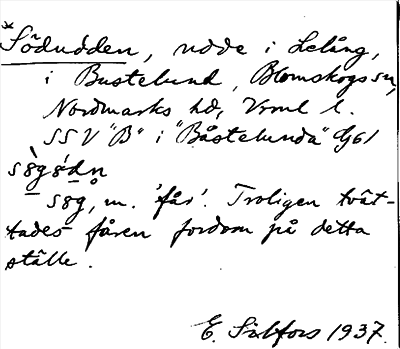 *Södudden, udde i Lelång,
i Bustelund, Blomskogs sn,
Nordmarks hd, Vrml l.
SSV "B" i "Båstelunda" Gg61
søgødn
søg, m. 'får'. Troligen tvät-
tades fåren fordom på detta
ställe.
E. Salfors 1937.